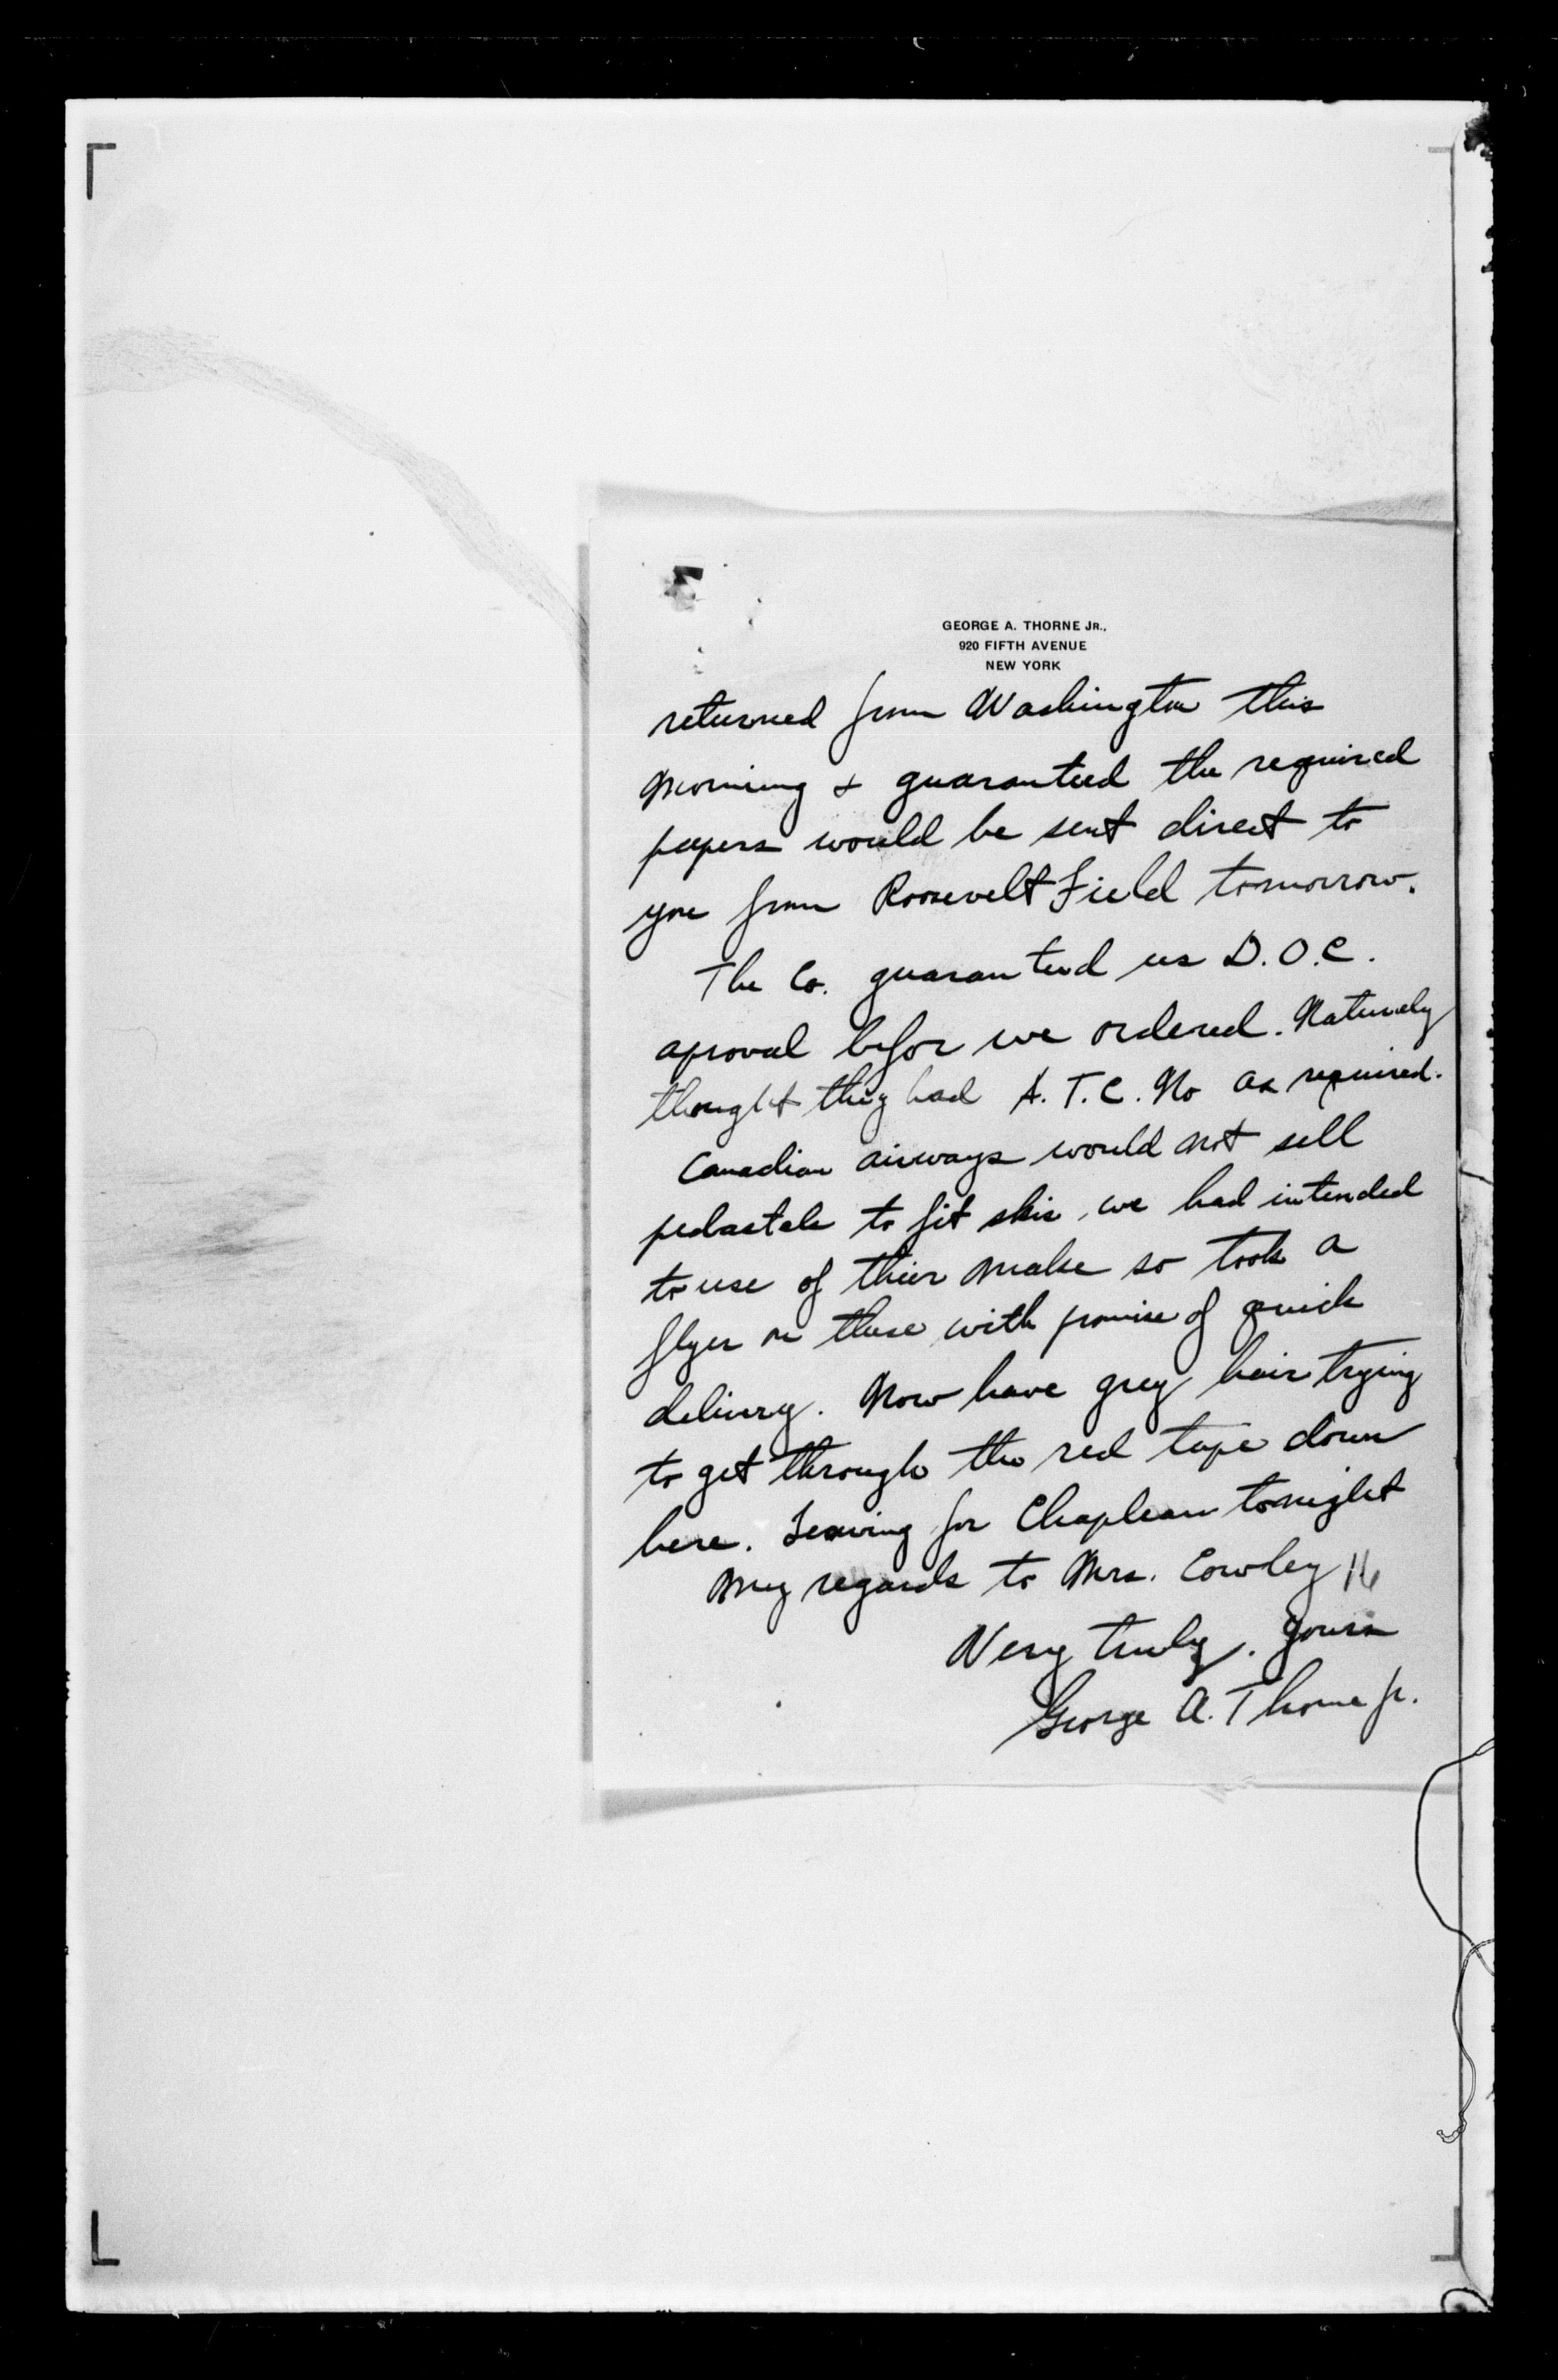 GEORGE A. THORNE JR.,
920 FIFTH AVENUE
NEW YORK
returned from Washington this
morning & guaranteed the required
papers would be sent direct to
you from Roosevelt Field tomorrow.
The Co. guaranteed us D.O.C.
aproval befor we ordered. Naturaly
thought they had A.T.C. No as required.
Canadian airways would not sell
pedastals to fit skis, we had intended
to use of thier make so took a
flyer on these with promise of quick
delivery. Now have grey hair trying
to get through the red tape down
here. Leaving for Chapleau tonight
My regards to Mrs. Cowley
Very truly. yours
George A. Thorne Jr.